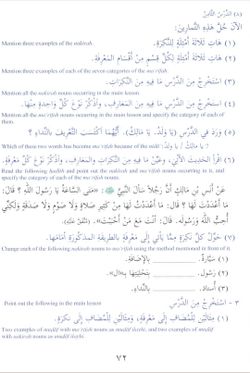 (٨) الدَّرْسُ الثَّامِنُ
الآنَ حُلَّ هَذِهِ التَّمَارِينَ:
(١) هَاتِ ثَلَاثَةَ أَمْثِلَةٍ لِلنَّكِرَةِ.
Mention three examples of the nakirah.
(٢) هَاتِ ثَلَاثَةَ أَمْثِلَةٍ لِكُلِّ قِسْمٍ مِنْ أَقْسَامِ الْمَعْرِفَةِ.
Mention three examples of each of the seven categories of the ma'rifah
(٣) اسْتَخْرِجْ مِنَ الدَّرْسِ مَا فِيهِ مِنَ النَّكِرَاتِ.
Mention all the nakirah nouns occurring in the main lesson
(٤) اسْتَخْرِجْ مِنَ الدَّرْسِ مَا فِيهِ مِنَ الْمَعَارِفِ، وَاذْكُرْ نَوْعَ كُلِّ وَاحِدَةٍ مِنْهَا.
Mention all the ma'rifah nouns occurring in the main lesson and specify the category of each of them.
(٥) وَرَدَ فِي الدَّرْسِ (يَا وَلَدُ، يَا مَالِكُ)، أَيُّهُمَا اكْتَسَبَ التَّعْرِيفَ بِالنِّدَاءِ؟
Which of these two words has become ma'rifah because of the nidā' : يا ولد / يا مالك ?
(٦) اقْرَأِ الْحَدِيثَ الْآتِيَ، وَعَيِّنْ مَا فِيهِ مِنَ النَّكِرَاتِ وَالْمَعَارِفِ، وَاذْكُرْ نَوْعَ كُلِّ مَعْرِفَةٍ.
Read the following hadīth and point out the nakirah and ma'rifah nouns occurring in it, and specify the category of each of the ma'rifah nouns.
عَنْ أَنَسِ بْنِ مَالِكٍ أَنَّ رَجُلًا سَأَلَ النَّبِيَّ ﷺ: «مَتَى السَّاعَةُ يَا رَسُولَ اللَّهِ؟ قَالَ:
مَا أَعْدَدْتَ لَهَا؟ قَالَ: مَا أَعْدَدْتُ لَهَا مِنْ كَثِيرِ صَلَاةٍ وَلَا صَوْمٍ وَلَا صَدَقَةٍ وَلَكِنِّي
أُحِبُّ اللَّهَ وَرَسُولَهُ. قَالَ: أَنْتَ مَعَ مَنْ أَحْبَبْتَ».
(٧) حَوِّلْ كُلَّ نَكِرَةٍ مِمَّا يَأْتِي إِلَى مَعْرِفَةٍ بِالطَّرِيقَةِ الْمَذْكُورَةِ أَمَامَهَا.
Change each of the following nakirah nouns to ma'rifah using the method mentioned in front of it.
(١) سَيَّارَةٌ. بِالْإِضَافَةِ.
(٢) رَسُولٌ. بِتَحْلِيَتِهَا بـ«ال».
(٣) أُسْتَاذٌ. بِالنِّدَاءِ.
٣ - اسْتَخْرِجْ مِنَ الدَّرْسِ Point out the following in the main lesson
(١) مِثَالَيْنِ لِلْمُضَافِ إِلَى مَعْرِفَةٍ، وَمِثَالَيْنِ لِلْمُضَافِ إِلَى نَكِرَةٍ.
Two examples of mudāf with ma'rifah nouns as mudāf ilayhi, and two examples of mudāf with nakirah nouns as mudāf ilayhi.
٧٢